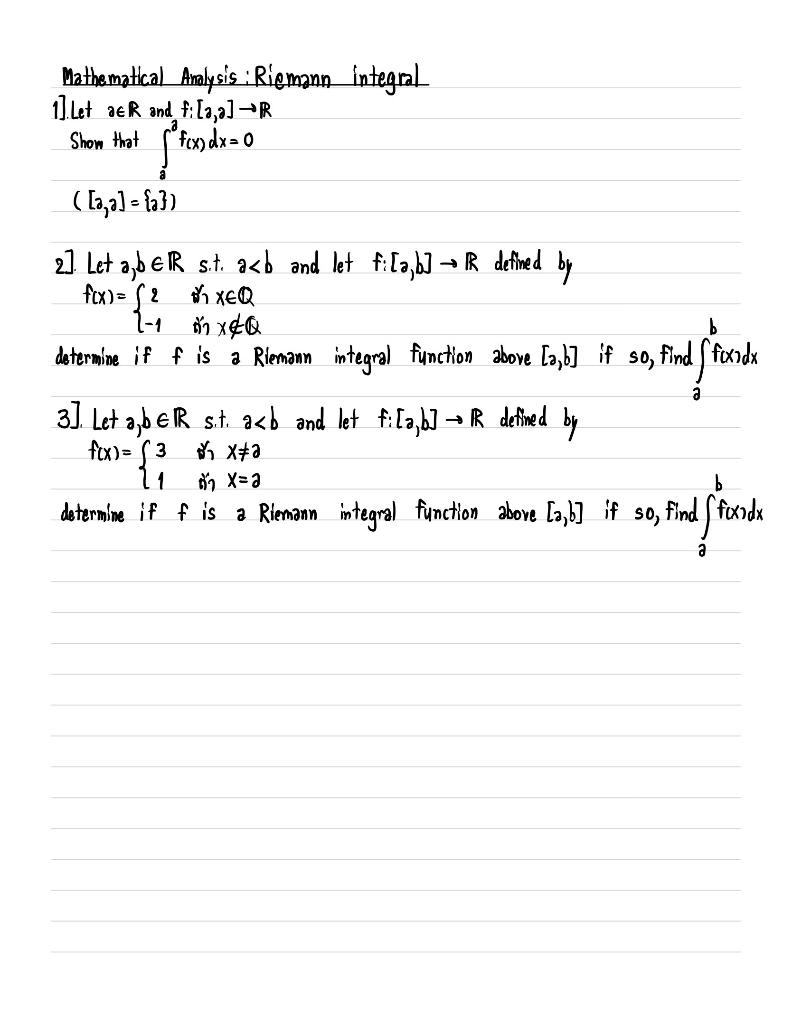 Mathematical Analysis : Riemann integral
1]. Let a∈ℝ and f:[a,a]→ℝ
Show that ∫ₐᵃ f(x)dx = 0
([a,a] = {a})
2]. Let a,b∈ℝ s.t. a<b and let f:[a,b]→ℝ defined by
f(x) = { 2 ถ้า x∈ℚ
-1 ถ้า x∉ℚ
determine if f is a Riemann integral function above [a,b] if so, find ∫ₐᵇ f(x)dx
3]. Let a,b∈ℝ s.t. a<b and let f:[a,b]→ℝ defined by
f(x) = { 3 ถ้า x≠a
1 ถ้า x=a
determine if f is a Riemann integral function above [a,b] if so, find ∫ₐᵇ f(x)dx